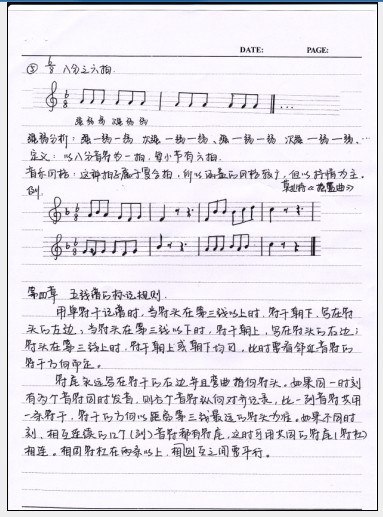 DATE: PAGE:
③ 6/8 八分之六拍.
强弱弱 次强弱弱
强弱分析: 强-弱-弱 次强-弱-弱、强-弱-弱 次强-弱-弱、…
定义: 以八分音符为一拍,每小节有六拍.
音乐风格: 这种拍子属于复合拍,所以涵盖的风格较广,但以抒情为主。
例.
第四章 五线谱的标记规则.
用单符干记谱时,当符头在第三线以上时,符干朝下,写在符
头的左边;当符头在第三线以下时,符干朝上,写在符头的右边;
符头在第三线上时,符干朝上或朝下均可,此时要看邻近音符的
符干方向而定。
符尾永远写在符干的右边并且弯曲指向符头。如果同一时刻
有多个音符同时发音,则多个音符纵向对齐记录,此一列音符共用
一条符干,符干的方向以距离第三线最远的符头为准。如果不同时
刻、相互连续的几个(列)音符都有符尾,这时可用共同的符尾(符杠)
相连。相同符杠在两条以上,相互之间要平行。